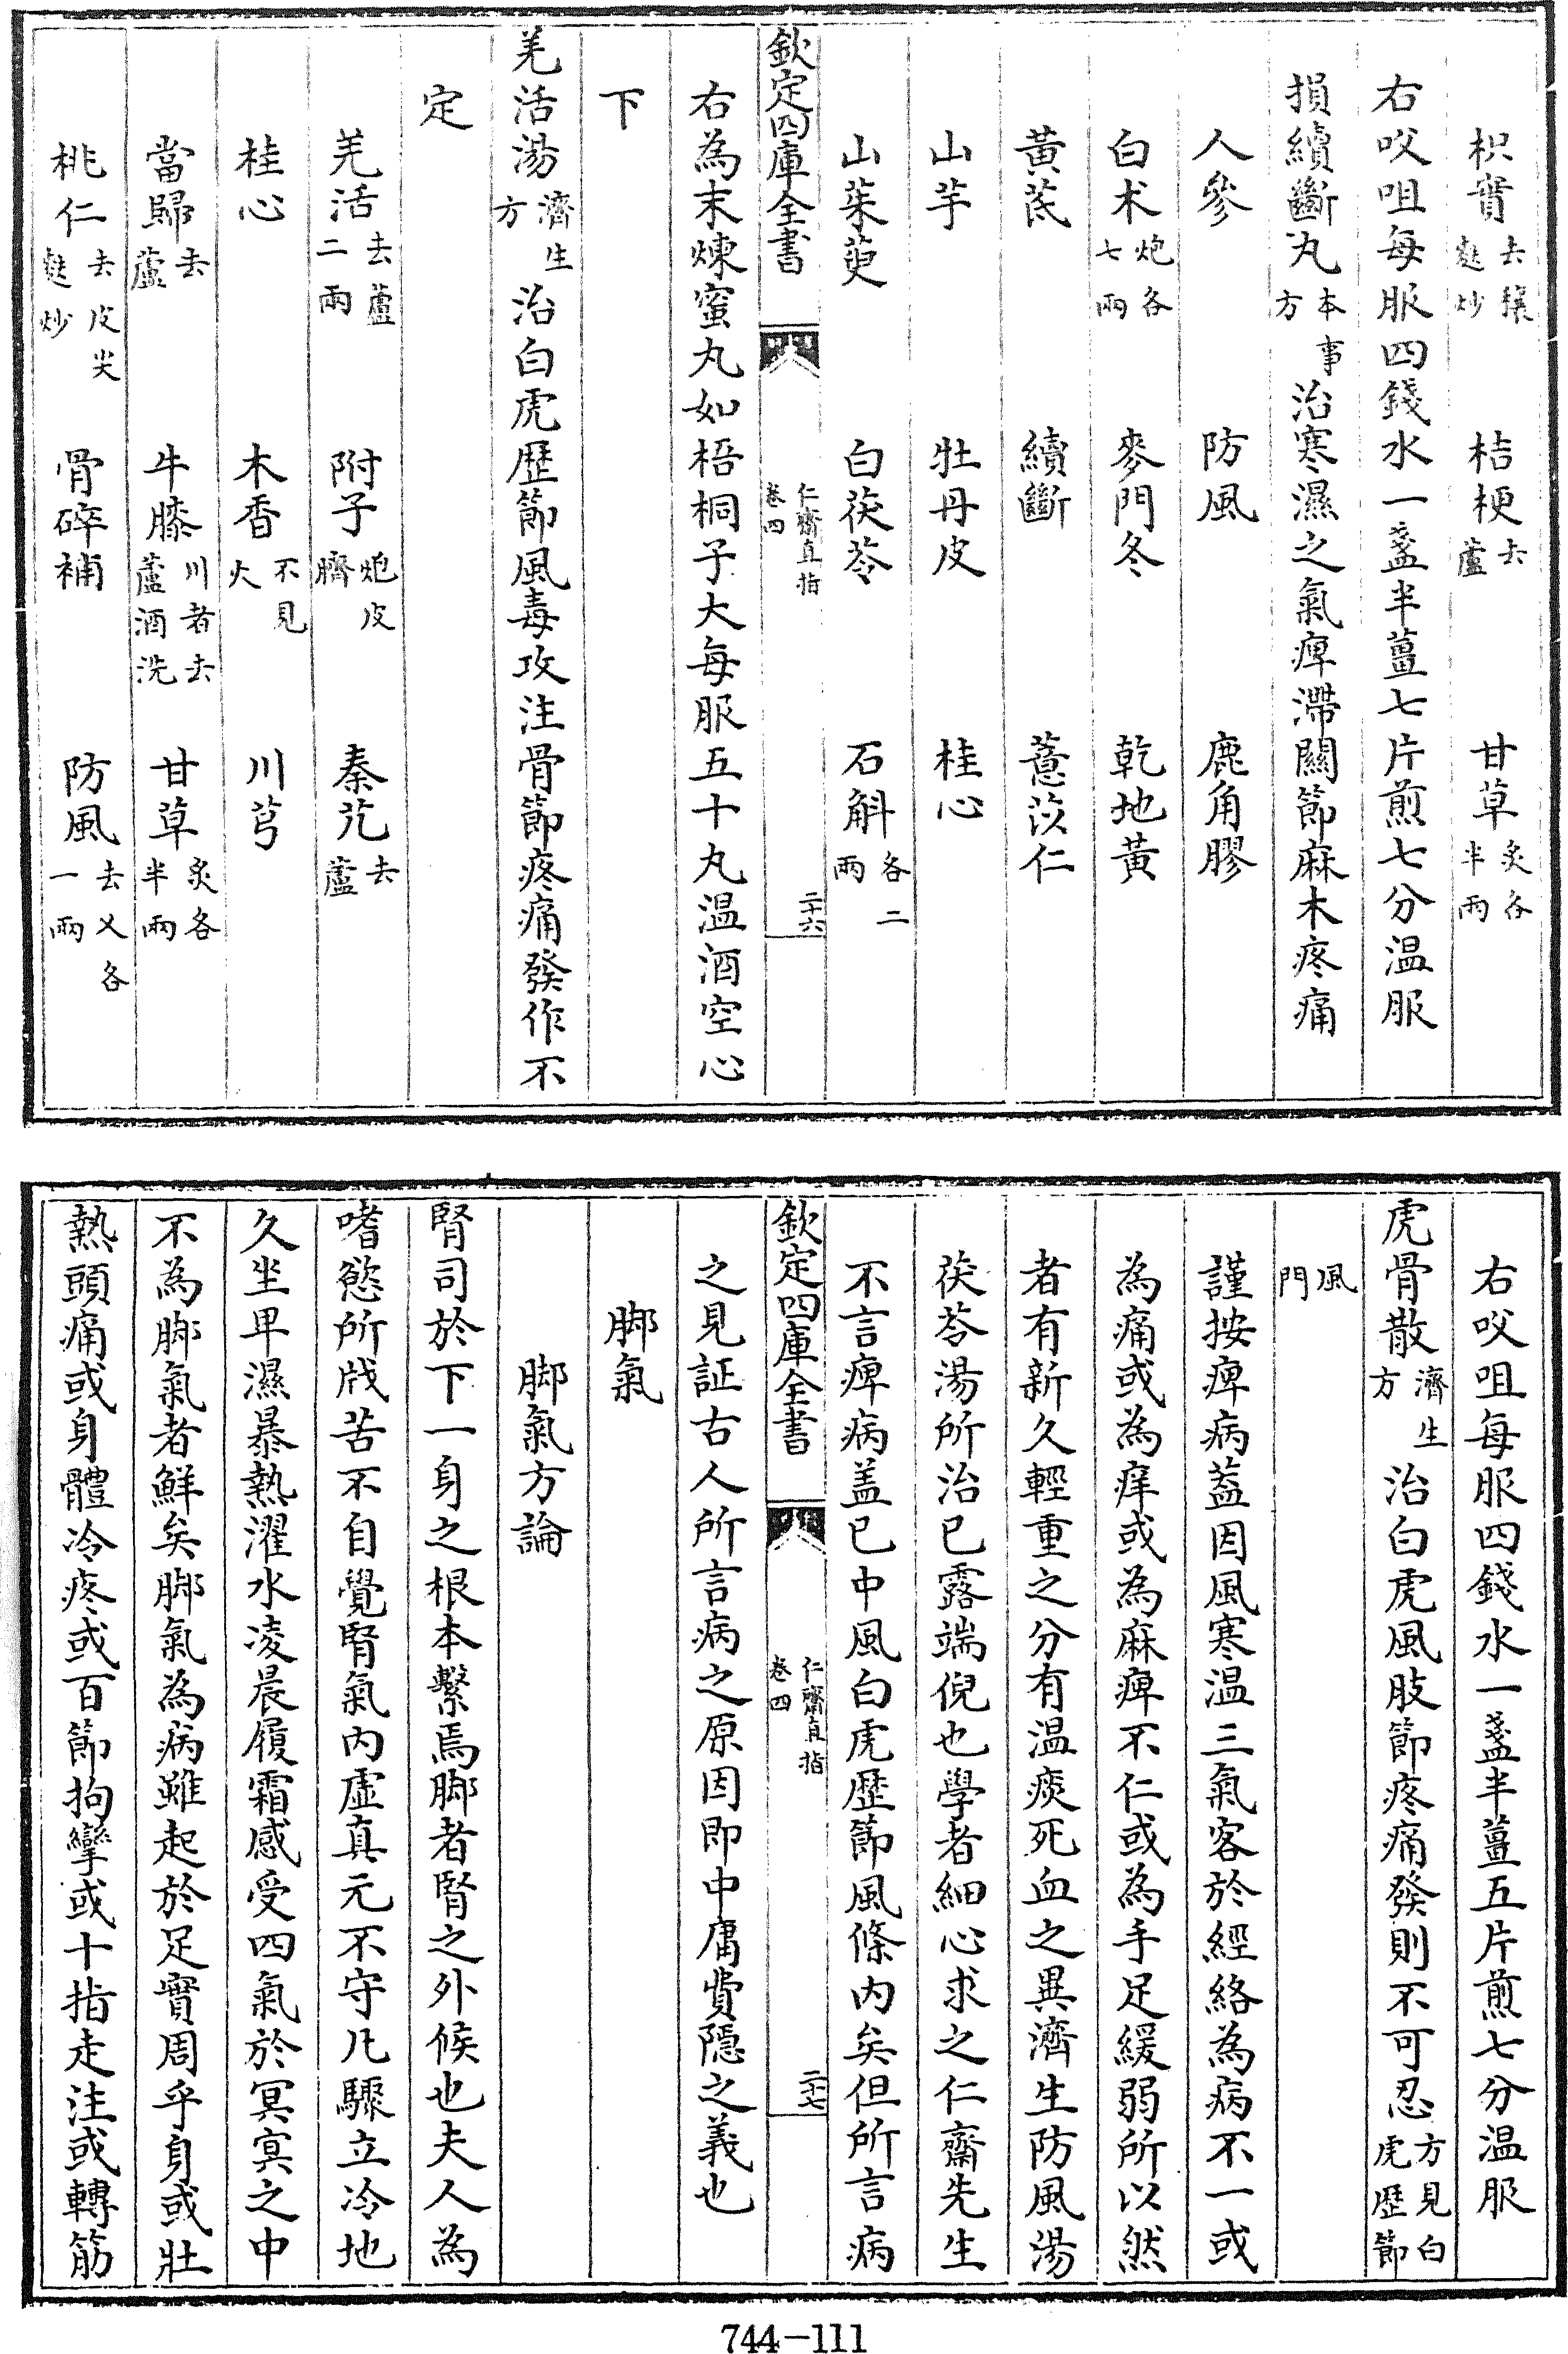 枳實去穰麩炒　桔梗去蘆　甘草炙各半兩
右㕮咀每服四錢水一盞半薑七片煎七分温服
損續斷丸本事方治寒濕之氣痺滯關節麻木疼痛
人參　防風　鹿角膠
白术炮各七兩　麥門冬　乾地黃
黃芪　續斷　薏苡仁
山芋　牡丹皮　桂心
山茱萸　白茯苓　石斛各二兩
欽定四庫全書　仁齋直指卷四　二十六
右為末煉蜜丸如梧桐子大每服五十丸温酒空心
下
羌活湯濟生方治白虎歷節風毒攻注骨節疼痛發作不
定
羌活去蘆二兩　附子炮皮臍　秦艽去蘆
桂心　木香不見火　川芎
當歸去蘆　牛膝川者去蘆酒洗　甘草炙各半兩
桃仁去皮尖麩炒　骨碎補　防風去义各一兩
右㕮咀每服四錢水一盞半薑五片煎七分温服
虎骨散濟生方治白虎風肢節疼痛發則不可忍方見白虎歷節
風門
謹按痺病蓋因風寒温三氣客於經絡為病不一或
為痛或為痒或為麻痺不仁或為手足緩弱所以然
者有新久輕重之分有温痰死血之異濟生防風湯
茯苓湯所治已露端倪也學者細心求之仁齋先生
不言痺病盖已中風白虎歷節風條内矣但所言病
欽定四庫全書　仁齋直指卷四　二十七
之見証古人所言病之原因即中庸費隱之義也
脚氣
脚氣方論
腎司於下一身之根本繫焉脚者腎之外候也夫人為
嗜慾所戕苦不自覺腎氣内虛真元不守凡驟立冷地
久坐卑濕暴熱濯水凌晨履霜感受四氣於冥冥之中
不為脚氣者鮮矣脚氣為病雖起於足實周乎身或壯
熱頭痛或身體冷疼或百節拘攣或十指走注或轉筋
744-111